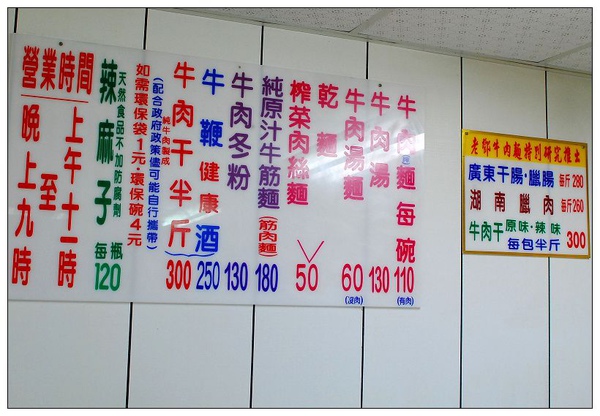 牛肉麵每碗
110
(有肉)
牛肉湯
130
牛肉湯麵
60
(沒肉)
乾麵
榨菜肉絲麵
50
純原汁牛筋麵(筋肉麵)
180
牛肉冬粉
130
牛鞭健康酒
250
純牛肉製成
牛肉干半斤
300
(配合政府政策儘可能自行攜帶)
如需環保袋1元‧環保碗4元
天然食品不加防腐劑
辣麻子
每瓶
120
營業時間
上午十一時
至
晚上九時
老鄧牛肉麵特別研究推出
廣東干腸‧臘腸 每斤280
湖南臘肉 每斤260
牛肉干 原味‧辣味 每包半斤 300